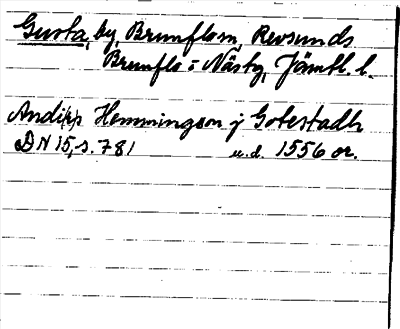 Gusta, by, Brunflo sn, Revsunds
Brunflo o Näsby, Jämtl. l.
Andi Hemmingson j Gotestadh
DN 15, s. 781 u.d. 1556 or.